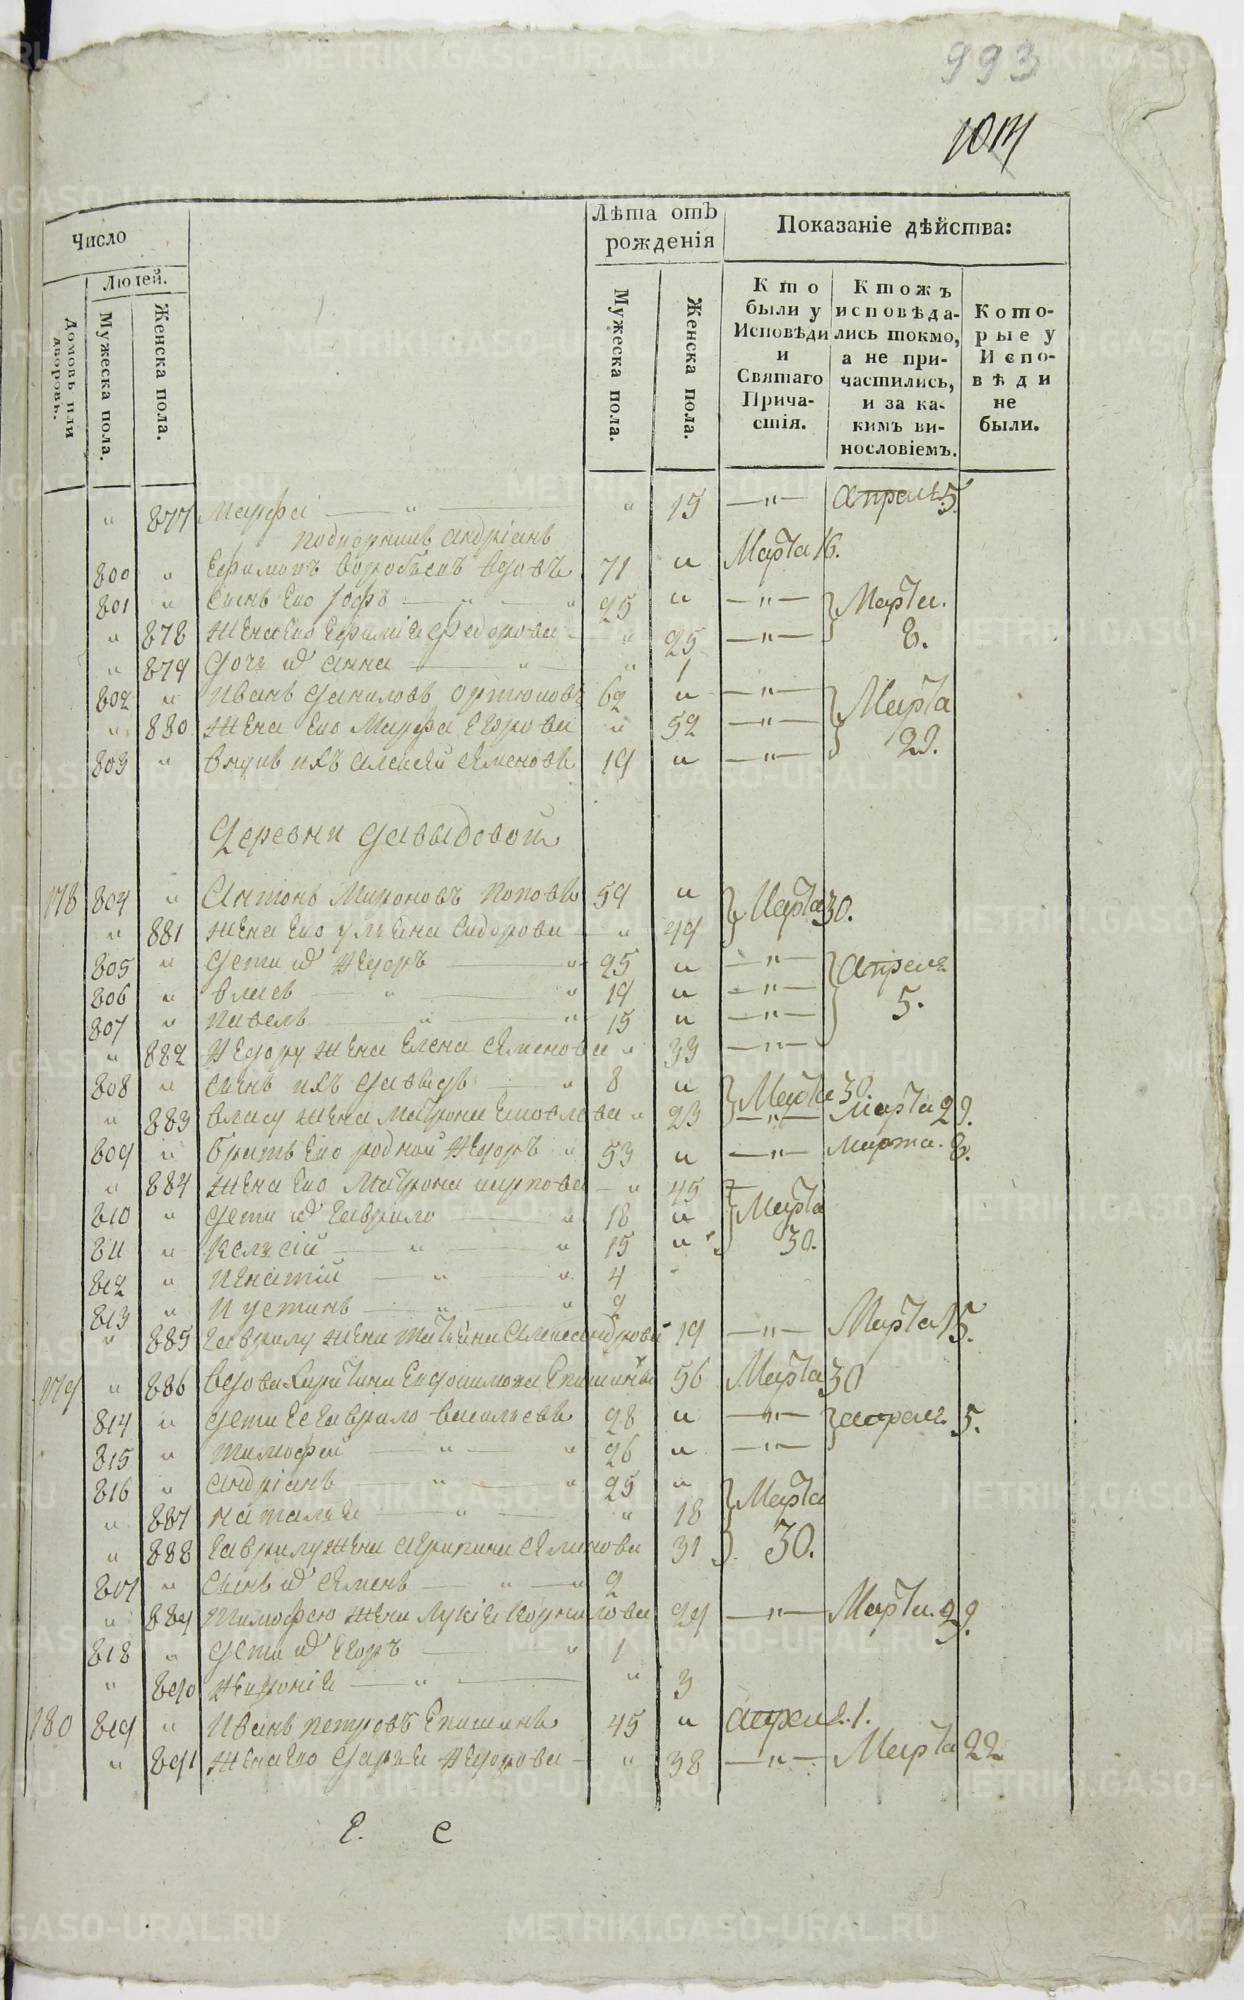 993
Число
Лѣта отъ рожденія
Показаніе дѣйства:
Людей.
Домовъ или дворовъ.
Мужеска пола.
Женска пола.
Мужеска пола.
Женска пола.
Кто были у Исповѣди и Святаго Причастія.
Ктожъ исповѣдались токмо, а не причастились, и за какимъ винословіемъ.
Которые у Исповѣди не были.
" 877 Марфа — " — " 15 — " — апреля 5.
андріанъ
800 " Ефимовъ воробьевъ вдовъ 71 " Марта 16.
801 " Сынъ его — " — " 25 " — " — Марта 8.
" 878 Жена его Федорова — " 25 — " —
" 879 Дочь анна — " — " 1
802 " Иванъ Даниловъ 62 " — " — Марта 29.
" 880 Жена его Марфа Егорова " 52 — " —
803 " внукъ ихъ алексей Семеновъ 19 " — " —
Деревни Давыдовой
178 804 " Антонъ Мироновъ поповъ 59 " Марта 30.
" 881 Жена его ульяна Сидорова — " 49
805 " Дети Федоръ — " 25 " — " — апреля 5.
806 " власъ — " — " 19 " — " —
807 " павелъ — " — " 15 " — " —
" 882 Федору жена Елена Семенова " 33 — " —
808 " Сынъ ихъ Давыдъ — " 8 " Марта 30.
" 883 власу жена Матрона " 23 — " — Марта 29.
809 " братъ его родной Федоръ " 53 " — " — Марта 8.
" 884 Жена его Матрона карпова — " 45 Марта 30.
810 " Дети Гаврило — " 18 "
811 " — " — " 15 "
812 " Игнатий — " — " 4
813 " Иустинъ — " — " 2
" 885 Гаврилу жена татьяна Александрова 19 — " — Марта 15.
179 " 886 вдова Евдокимова Епишина 56 Марта 30
814 " Дети Ее Гаврило васильевъ 28 " — " — апреля 5.
815 " тимофей — " — " 26 " — " —
816 " андріанъ — " — " 25 " Марта 30.
" 887 наталья — " — " 18
" 888 Гаврилу жена агрипина Семенова 31
817 " Сынъ Семенъ — " — " 2
" 889 тимофею жена Лукія 24 — " — Марта 29.
818 " Дети Егоръ — " 1
" 890 — " — " 3
180 819 " Иванъ петровъ Епишинъ 45 " апреля 1.
" 891 Жена его Дарья Федорова — " 38 — " — Марта 22
Е. С
METRIKI.GASO-URAL.RU